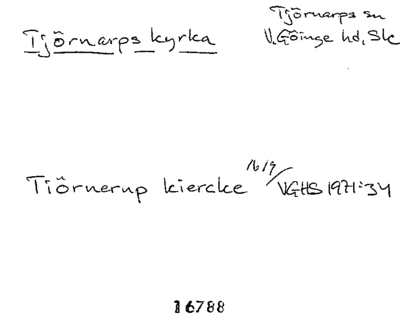 Tjörnarps kyrka
Tjörnarps sn
V. Göinge hd, Sk
Tiörnerup kiercke 1619/ VGHS 1971:34
16788